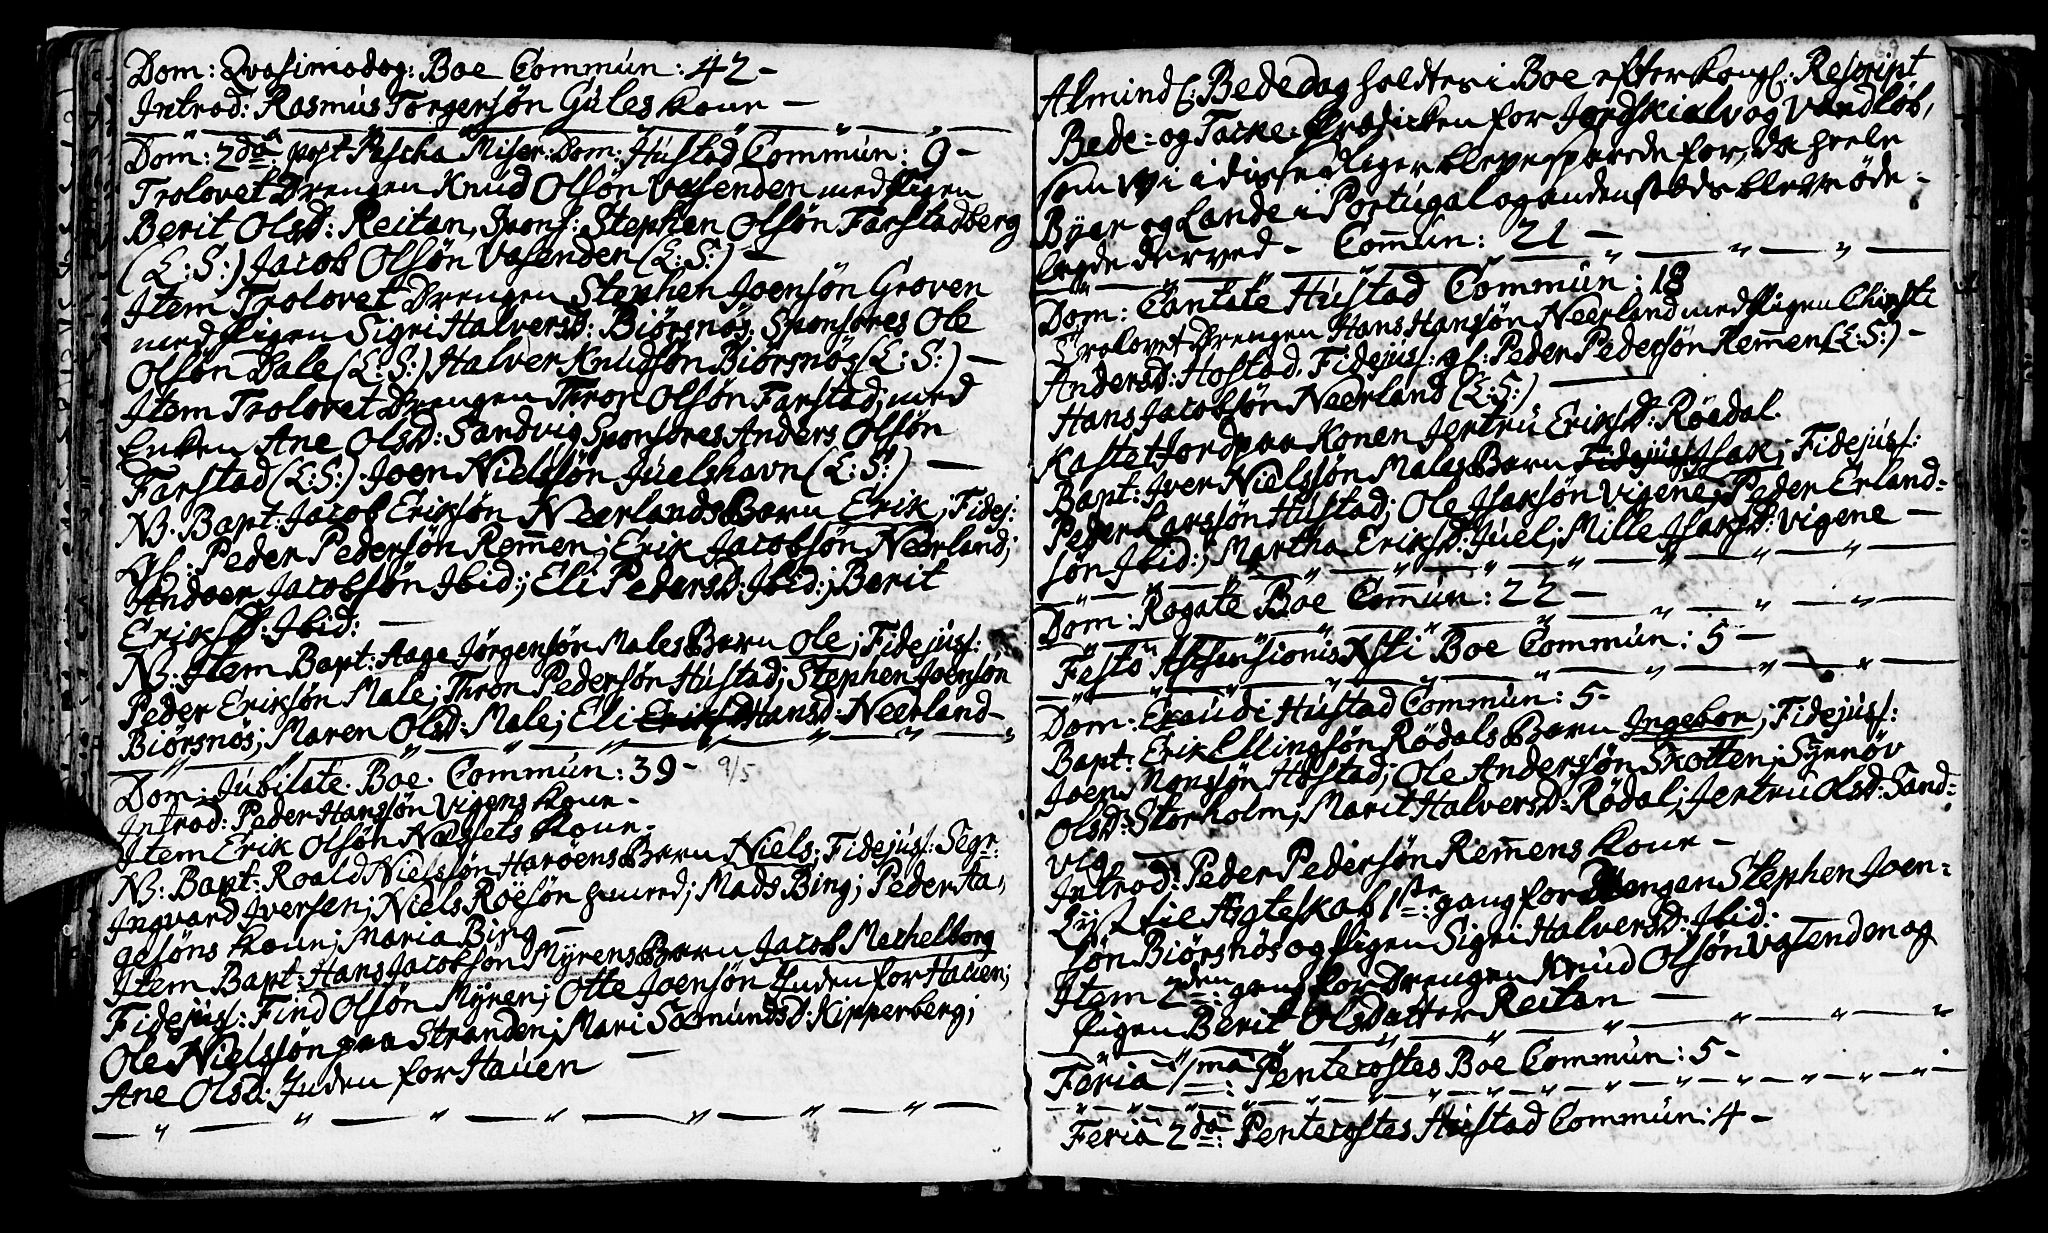 Dom: Qvasimodog: Boe Commun: 42 -
Introd: Rasmus Torgersøn Gules Kone -
Dom: 2da: post Pascha Miser: Dom: Hustad Commun: 9 -
Trolovet Drengen Knud Olsøn Vasenden med Pigen
Berit Olsd: Reitan, Spons: Stephen Olsøn Farstadberg
(L:S:) Jacob Olsøn Vasenden (L:S:) -
Item Trolovet Drengen Stephen Joensøn Groven
med Pigen Sigri Halversd: Biørsnøs, Sponsores Ole
Olsøn Dale (L:S:) Halver Knudsøn Biørsnøs (L:S:) -
Item Trolovet Drengen Thron Olsøn Farstad, med
Enken Ane Olsd: Sandvig Sponsores Anders Olsøn
Farstad (L:S:) Joen Nielssøn Juelshavn (L:S:) -
NB: Bapt: Jacob Eriksøn Neerlands Barn Erik; Fidej:
gl: Peder Pedersøn Remen; Erik Jacobsøn Neerland;
Andoer Jacobsøn Ibid:; Eli Pedersd: Ibid:; Berit
Eriksd: Ibid: -
NB: Item Bapt: Aage Jørgensøn Males Barn Ole; Fidejuss:
Peder Eriksøn Male; Thron Pedersøn Hustad; Stephen Joensøn
Biørsnøs; Maren Olsd: Male; Eli Eriksd Hansd: Neerland -
Dom: Jubilate Boe Commun: 39 - 9/5
Introd: Peder Hanssøn Vigens Kone -
Item Erik Olsøn Nægels Kone -
NB: Bapt: Roald Nielssøn Harøens Barn Niels; Fidejuss: Segr:
Ingvard Iversen; Niels Røesøn ; Mads Bing; Peder Aa-
gesøns Kone; Maria Bing -
Item Bapt: Hans Jacobsøn Myrens Barn Jacob Mechelborg
Fidejuss: Find Olsøn Myren; Otte Joensøn Inden for Hauen;
Ole Nielssøn paa Stranden; Mari Sæmundsd: Kipperberg;
Ane Olsd: Inden for Hauen -
Almindel: Bededag holdtes i Boe efter Kongl: Rescript
Bede- og Takke-Prædicken for Jordskielv og Vandløb,
som vi i disse Eger bleve sparede for, da heele
Byer og Lande i Portugal og andensteds bleve øde-
lagde derved - Comun: 21 -
Dom: Cantate Hustad Commun: 18
Trolovet Drengen Hans Hansøn Neerland med Pigen Chirsti
Andersd: Hostad, Fidejuss: gl: Peder Pedersøn Remen (L:S:) -
Hans Jacobsøn Neerland (L:S:) -
Kastet Jord paa Konen Jertru Eriksd: Røedal.
Bapt: Iver Nielssøn Males Barn Fidejuss Isak; Fidejuss:
Peder Larssøn Hustad; Ole Isaksøn Vigene; Peder Erland-
søn Ibid:; Martha Eriksd: Juel; Mille Isaksd: Vigene -
Dom: Rogate Boe Comun: 22 -
Festo Ascensionis Xsti Boe Commun: 5 -
Dom: Exaudi Hustad Commun: 5 -
Bapt: Erik Ellingsøn Rødals Barn Ingebor; Fidejuss:
Joen Monssøn Hostad; Ole Anderssøn Skotten; Synnøv
Olsd: Storholm; Marit Halversd: Rødal; Jertru Olsd: Sand-
vig -
Introd: Peder Pedersøn Remens Kone -
Lyst til Ægteskab 1ste gang for Drengen Stephen Joen-
søn Biørsnøs og Pigen Sigri Halversd: Ibid:
Item 2den gang for Drengen Knud Olsøn Vasenden og
Pigen Berit Olsdatter Reitan -
Feria 1ma: Pentecostes Boe Commun: 5 -
Feria 2da: Pentecostes Hustad Commun: 4 -